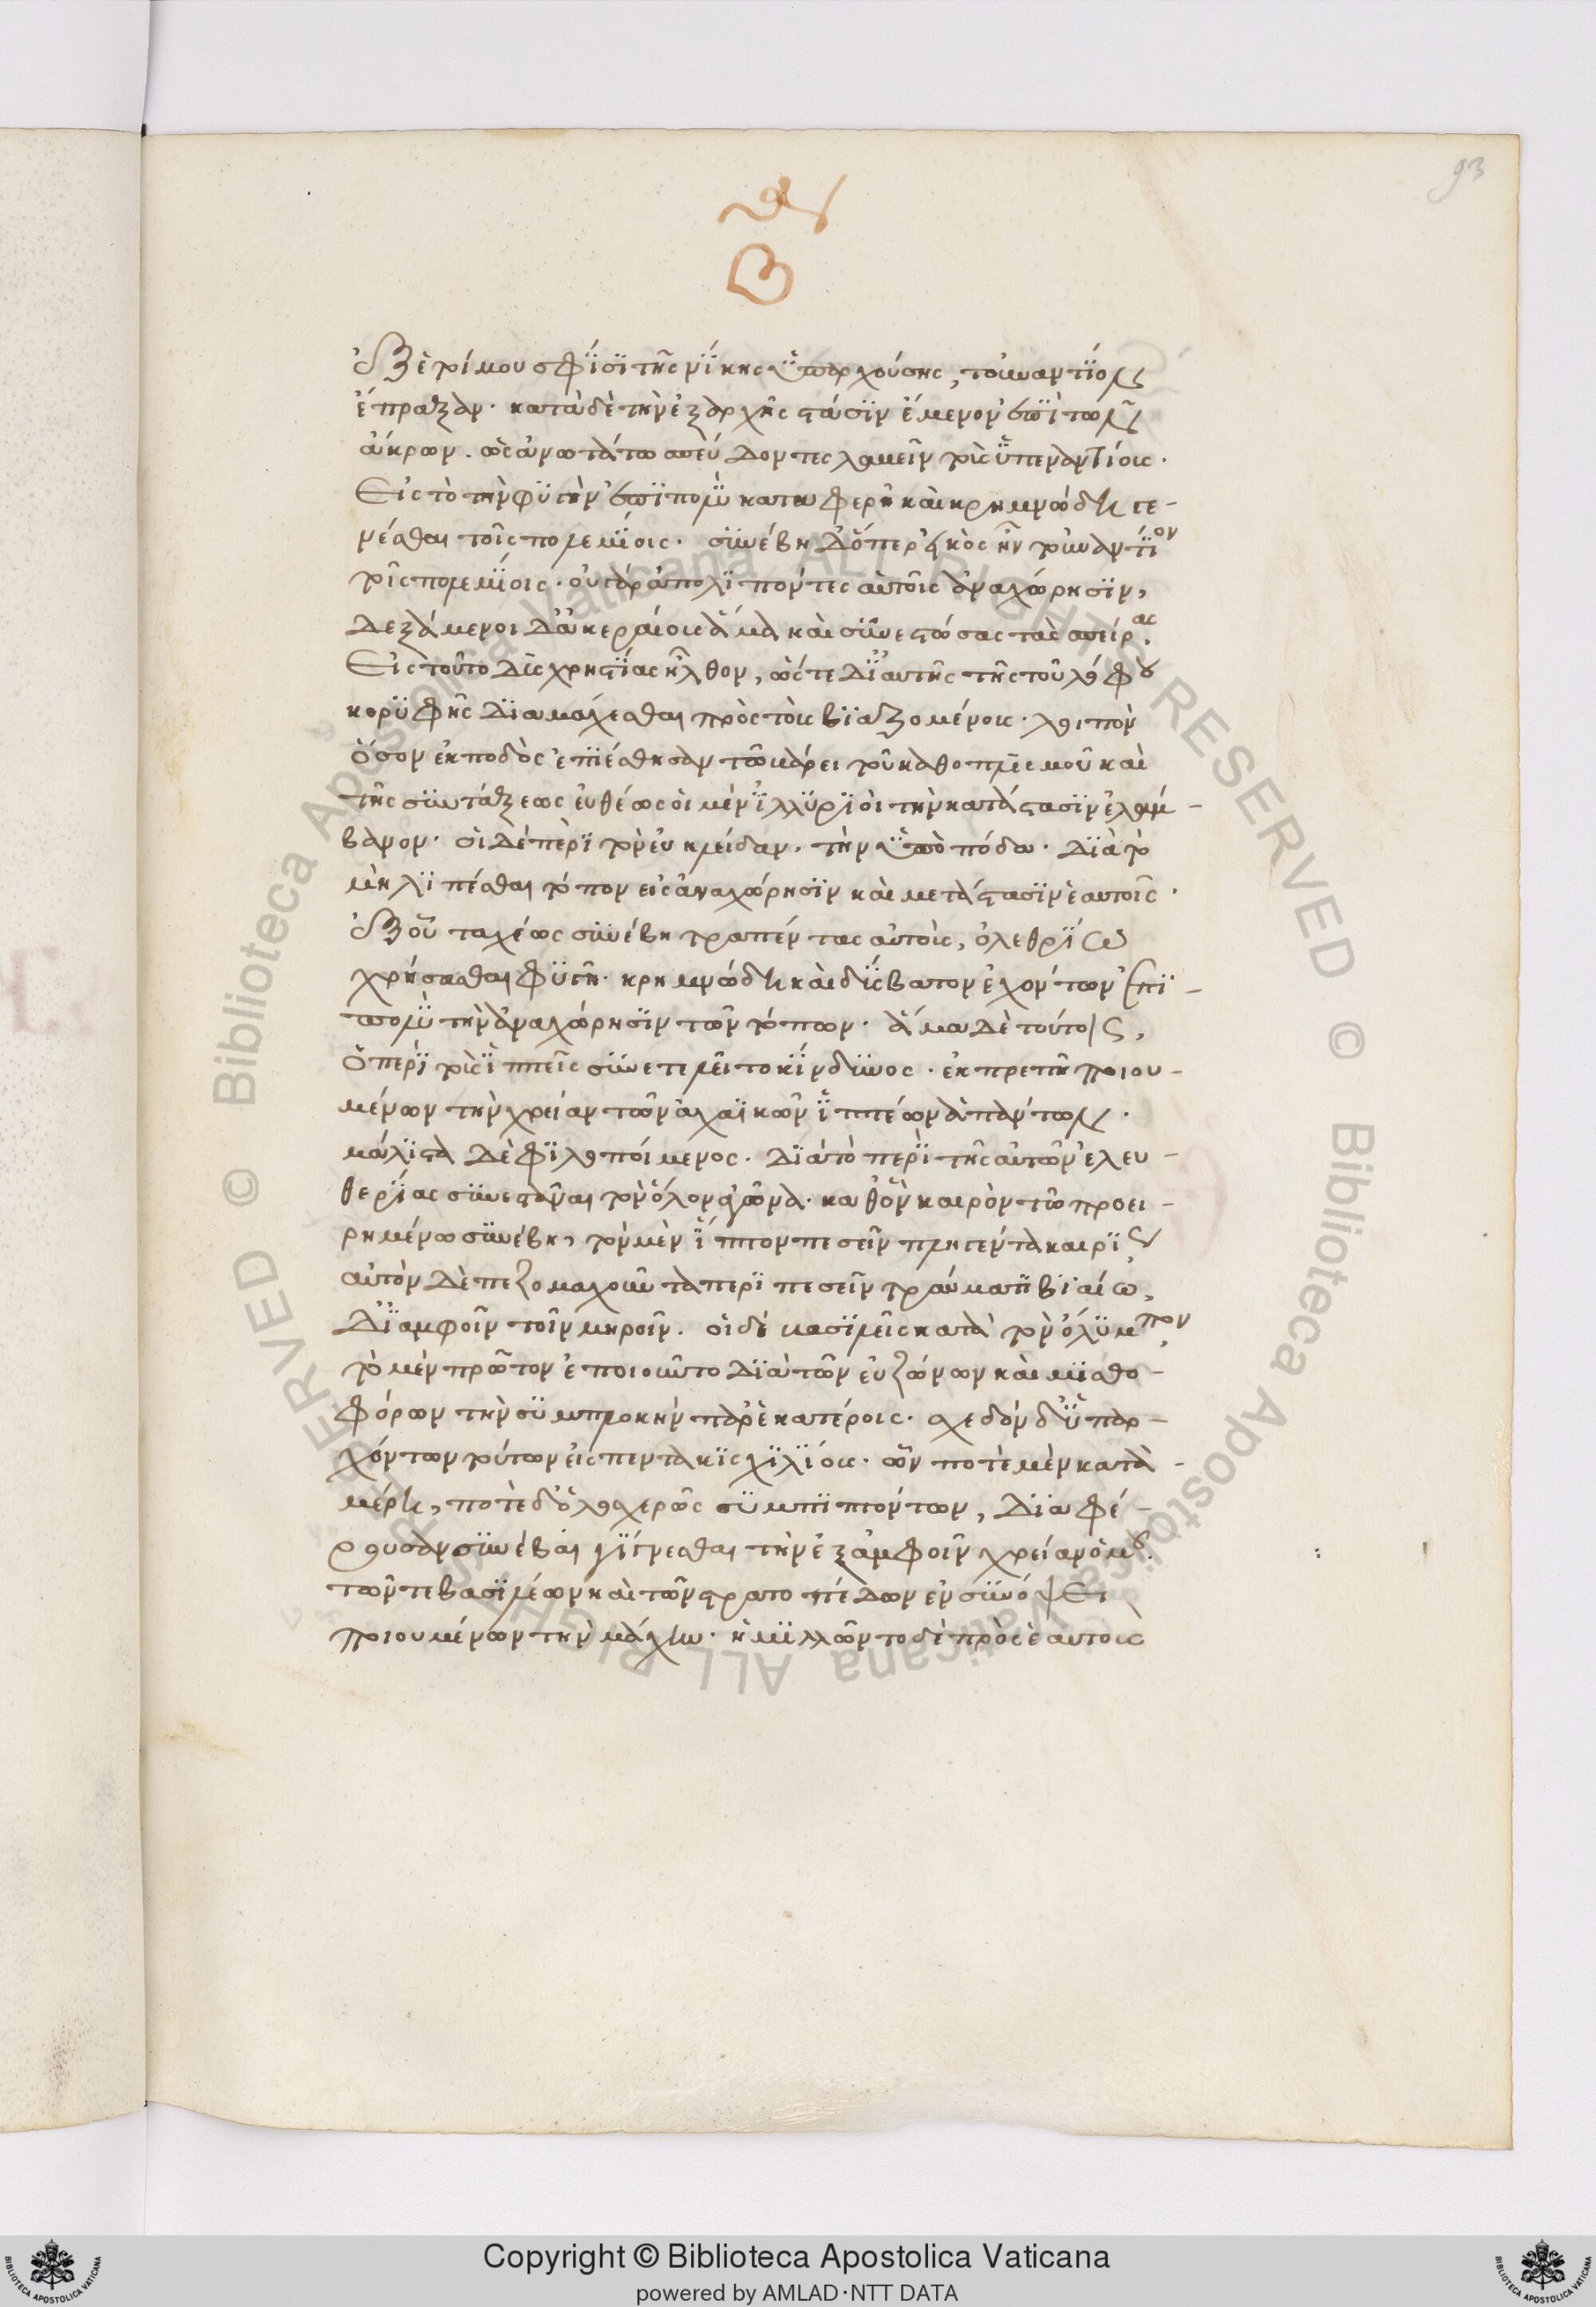 93
ἐξ ἑτοίμου σφίσι τῆς νίκης ὑπαρχούσης, τοὐναντίον
ἔπραξαν. κατὰ δὲ τὴν ἐξ ἀρχῆς στάσιν ἔμενον ἐπὶ τῶν
ἄκρων. ὡς ἀνωτάτω σπεύδοντες λαβεῖν τοὺς ὑπεναντίους.
Εἰς τὸ τὴν φυγὴν ἐπὶ πολὺ καταφερῆ καὶ κρημνώδη γε-
νέσθαι τοῖς πολεμίοις. συνέβη δ' ὅπερ εἰκὸς ἦν τοὐναντίον
τοῖς πολεμίοις. οὐ γὰρ ἀπολιπόντες αὑτοῖς ἀναχώρησιν,
δεξάμενοι δ' ἀκεραίους ἅμα καὶ συνεστώσας τὰς σπείρας.
Εἰς τοῦτο δυσχρηστίας ἦλθον, ὥστε δι' αὐτῆς τῆς τοῦ λόφου
κορυφῆς διαμάχεσθαι πρὸς τοὺς βιαζομένους. λοιπὸν
ὅσον ἐκ ποδὸς ἐπιέσθησαν τῶι βάρει τοῦ καθοπλισμοῦ καὶ
τῆς συντάξεως εὐθέως οἱ μὲν ἰλλυριοὶ τὴν κατάστασιν ἐλάμ-
βανον. οἱ δὲ περὶ τὸν εὐκλείδαν, τὴν ὑπὸ πόδα. διὰ τὸ
μὴ λιπέσθαι τόπον εἰς ἀναχώρησιν καὶ μετάστασιν ἑαυτοῖς.
ἐξ οὗ ταχέως συνέβη τραπέντας αὐτοὺς, ὀλεθρίω
χρήσασθαι φυγῆ. κρημνώδη καὶ δύσβατον ἐχόντων ἐπὶ
πολὺ τὴν ἀναχώρησιν τῶν τόπων. ἅμα δὲ τούτοις,
ὁ περὶ τοὺς ἱππεῖς συνετελεῖτο κίνδυνος. ἐκπρεπῆ ποιου-
μένων τὴν χρείαν τῶν ἀχαϊκῶν ἱππέων ἁπάντων.
μάλιστα δὲ φιλοποίμενος. διὰ τὸ περὶ τῆς αὐτῶν ἐλευ-
θερίας συνεστάναι τὸν ὅλον ἀγῶνα. καθ' ὃν καιρὸν τῶ προει-
ρημένω συνέβη, τὸν μὲν ἵππον πεσεῖν πληγέντα καιρίως
αὐτὸν δὲ πεζομαχοῦντα περιπεσεῖν τραύματι βιαίω,
δι' ἀμφοῖν τοῖν μηροῖν. οἱ δὲ βασιλεῖς κατὰ τὸν ὄλυμπον,
τὸ μὲν πρῶτον ἐποιοῦντο διὰ τῶν εὐζώνων καὶ μισθο-
φόρων τὴν συμπλοκὴν παρ' ἑκατέροις. σχεδὸν δ' ὑπαρ-
χόντων τούτων εἰς πεντακισχιλίους. ὧν ποτὲ μὲν κατὰ
μέρη, ποτὲ δ' ὁλοσχερῶς συμπιπτόντων, διαφέ-
ρουσαν συνέβαι γίγνεσθαι τὴν ἐξ ἀμφοῖν χρείαν ὁμοῦ.
τῶν τε βασιλέων καὶ τῶν στρατοπέδων ἐν συνόψει
ποιουμένων τὴν μάχην. ἡμιλλῶντο δὲ πρὸς ἑαυτοὺς
Copyright © Biblioteca Apostolica Vaticana
powered by AMLAD·NTT DATA